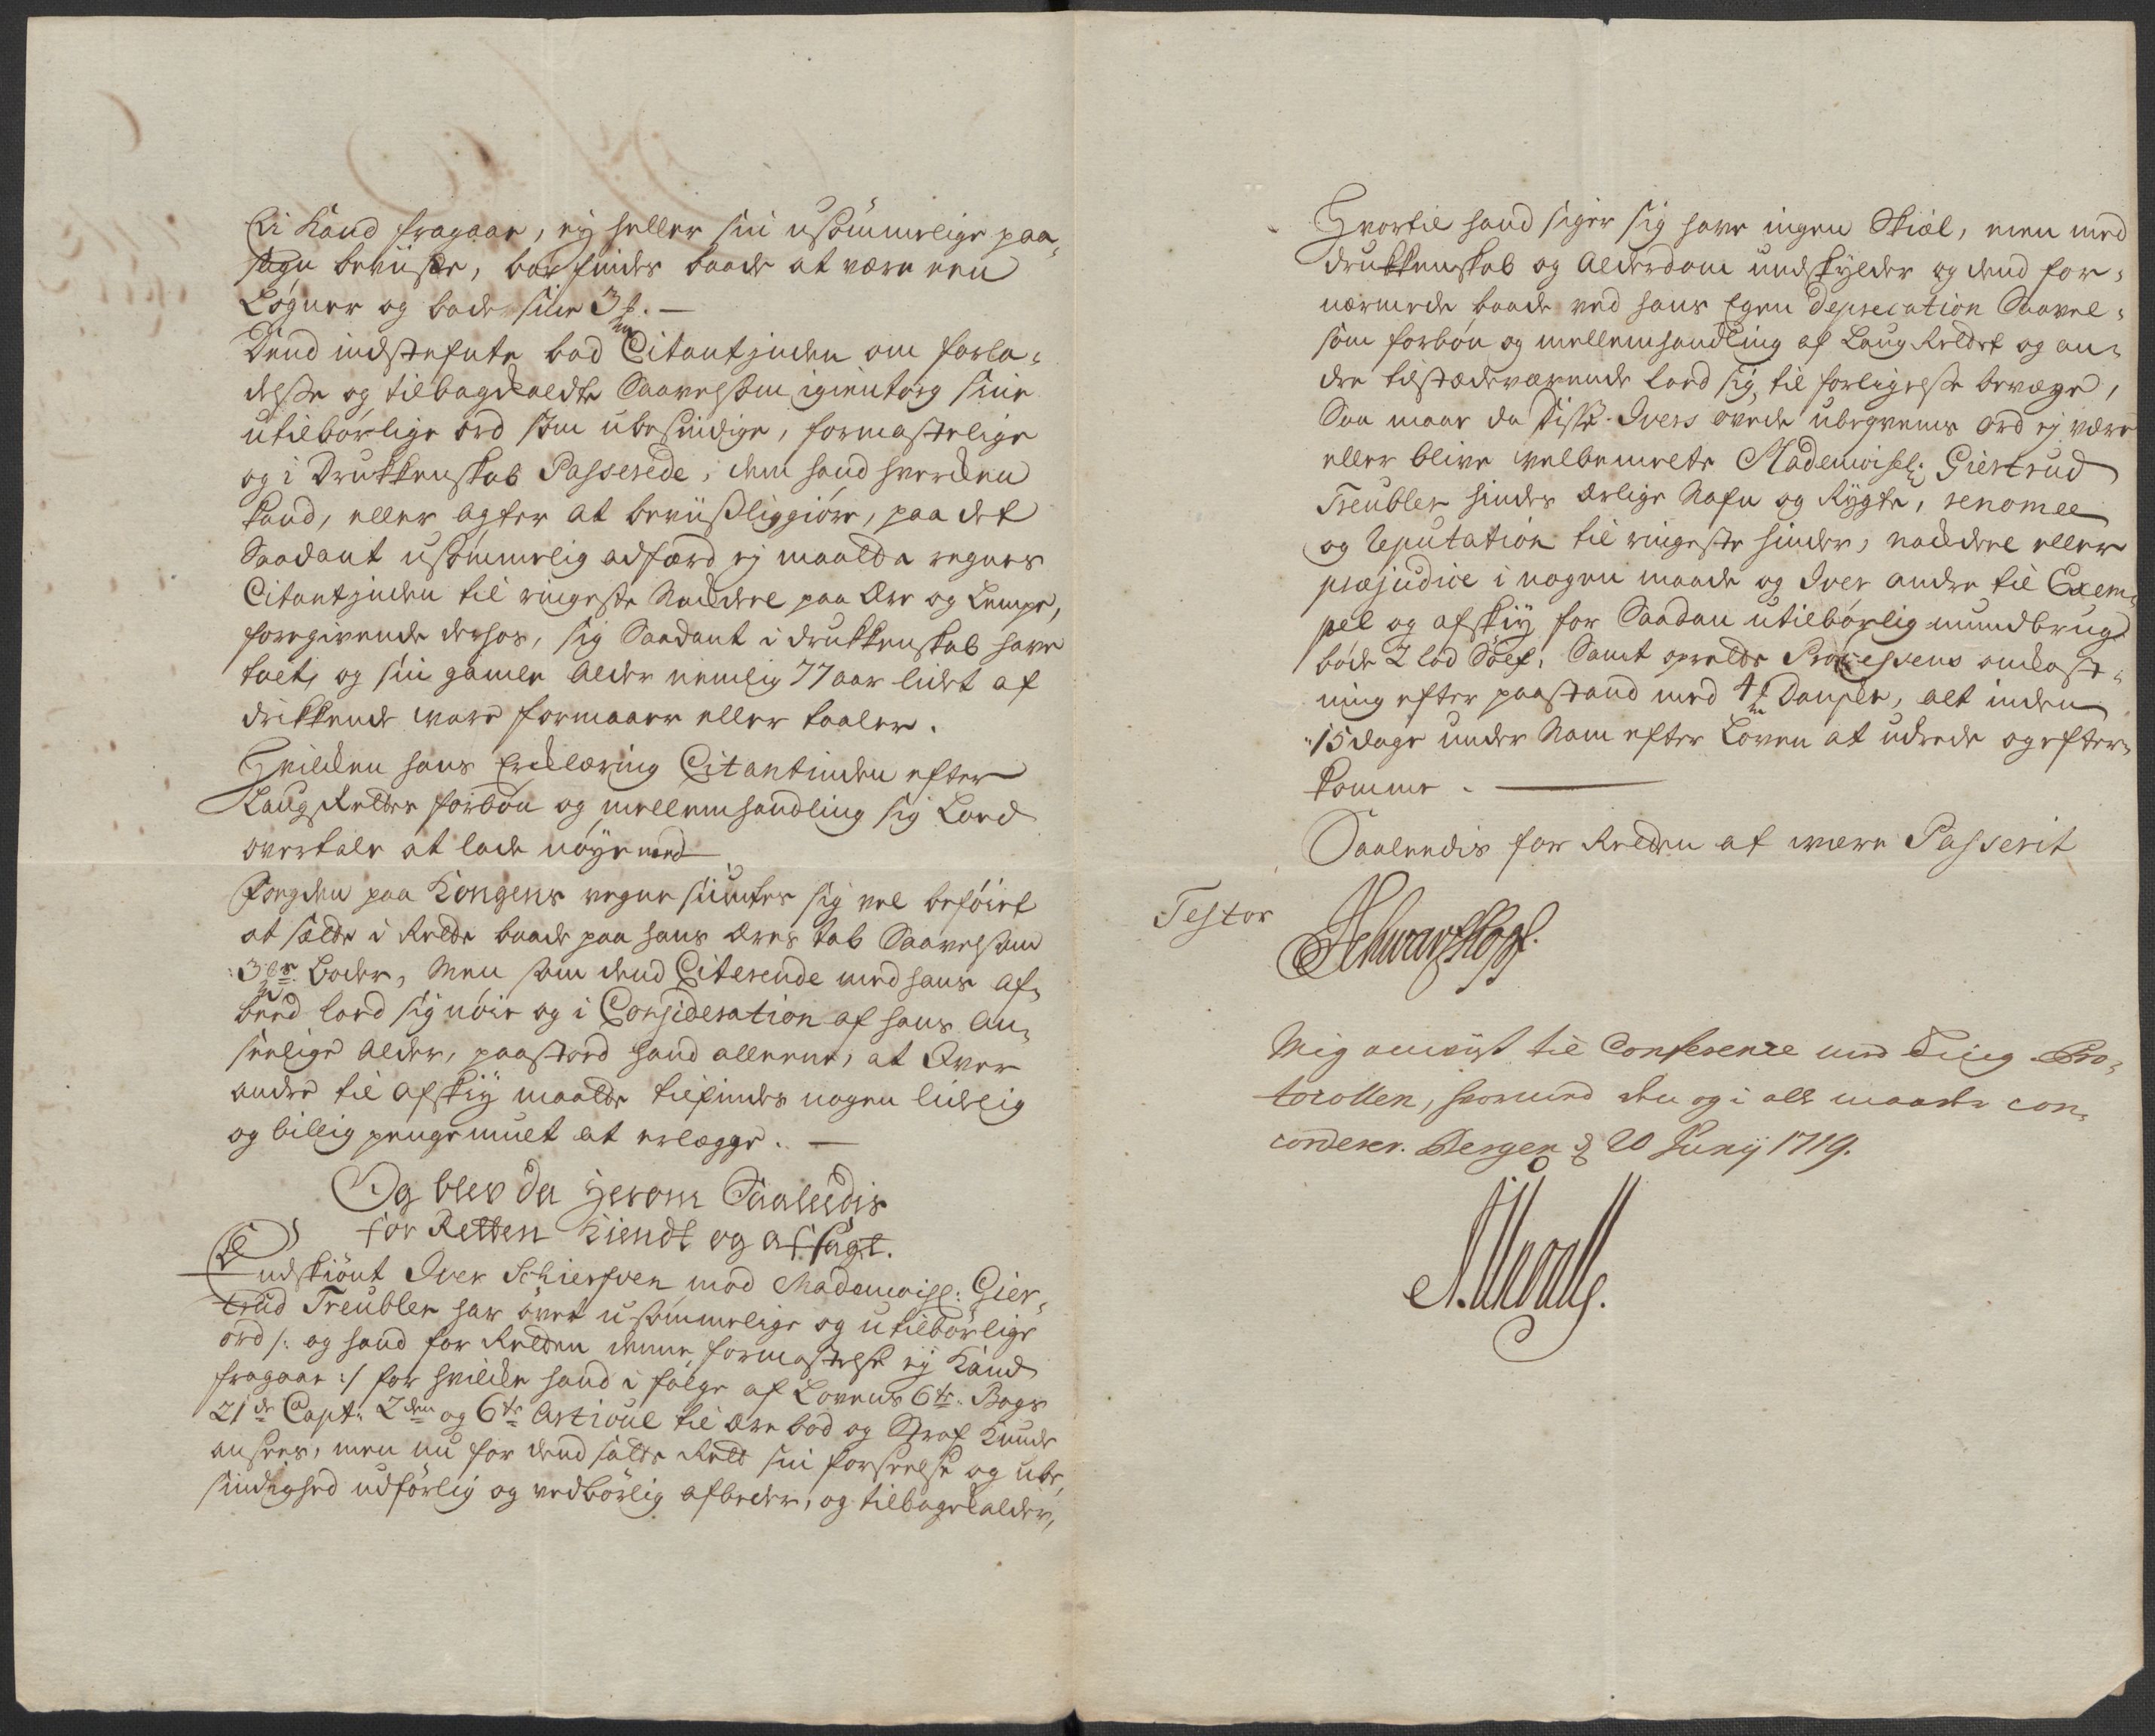 Ei Kand fragaae, ej heller sin usømmelige paa-
sagn beviise, bør findes baade at være een
Løgner og bøde sine 3
Dend indstefnte bad Citantinden om forla-
delse og tilbagekaldte Saavelsom igientog sine
utilbørlige ord som ubesindige, formastelige
og i Drukkenskab Passerede, dem hand hverken
kand, eller agter at beviisliggiøre, paa det
Saadant usømmelig adfærd ej maatte regnes
Citantinden til ringeste Nachdeel paa Ære og Lempe,
foregivende derhos, sig Saadant i drukkenskab have
talt, og sin gamle Alder nemlig 77 aar lidet af
drikkende vare formaaer eller taaler.
Hvilken hans Erclæring Citantinden efter
Laug Rettes forbøn og mellemhandling sig Loed
overtale at lade nøye med
Fogden paa Kongens vegne siuntes sig vel beføiet
at sætte i Rette baade paa hans Æres tab Saavelsom
3de Bøder, Men som dend Citerende med hans af-
bøed loed sig nøie og i Consideration af hans An-
seelige Alder, paastoed hand alleene, at Iver
andre til Afskÿ maatte tilfindes nogen lidelig
og billig penge muelt at erlægge. —
Og blev da herom Saaledis
for Retten Kiendt og afsagt.
Endskiønt Iver Schierfven mod Mademoise: Gier-
trud Treubler har øvet usømmelige og utilbørlige
ord /: og hand for Retten denne formastelse ej Kand
fragaae :/ for hvilke hand i følge af Lovens 6te Bogs
21de Capt: 2den og 6te Articul til Ære bod og Straf Kunde
ansees, men nu for dend satte Rett sin forseelse og ube-
sindighed udførlig og vedbørlig afbeder, og tilbagekalder,
Hvortil hand siger sig have ingen Skiæl, men med
drukkenskab og Alderdom undskylder og dend for-
nærmede baade ved hans Egen deprecation Saavel-
som forbøn og mellemhandling af Laug Rettet og an-
dre tilstædeværende loed sig til forligelse bevæge,
Saa maae da disse Ivers øvede ubeqvems Ord ej være
eller blive velbemelte Mademoisel: Giertrud
Treubler hindes ærlige Nafn og Rygte, renomee
og Reputation til ringeste hinder, nachdeel eller
præjudice i nogen maade og Iver andre til Exem-
pel og afskÿ for Saadan utilbørlig mundbrug
bøde 2 lod Sölf, Samt oprette Processens omkost-
ning efter paastand med 4 Danske, alt inden
15 dage under Nam efter Loven at udrede og efter-
komme. —
Saaleedis for Retten at være Passerit
Testor
Schwartzkopf.
Mig anviist til Conference med Ting Pro-
tocollen, hvormed den og i alle maader con-
corderer. Bergen d 20 Junij 1719.